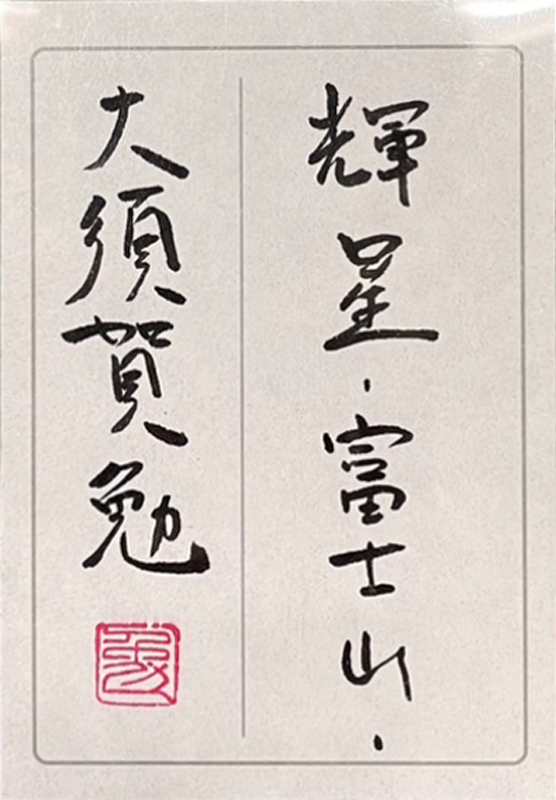 輝星・富士山・
大須賀勉